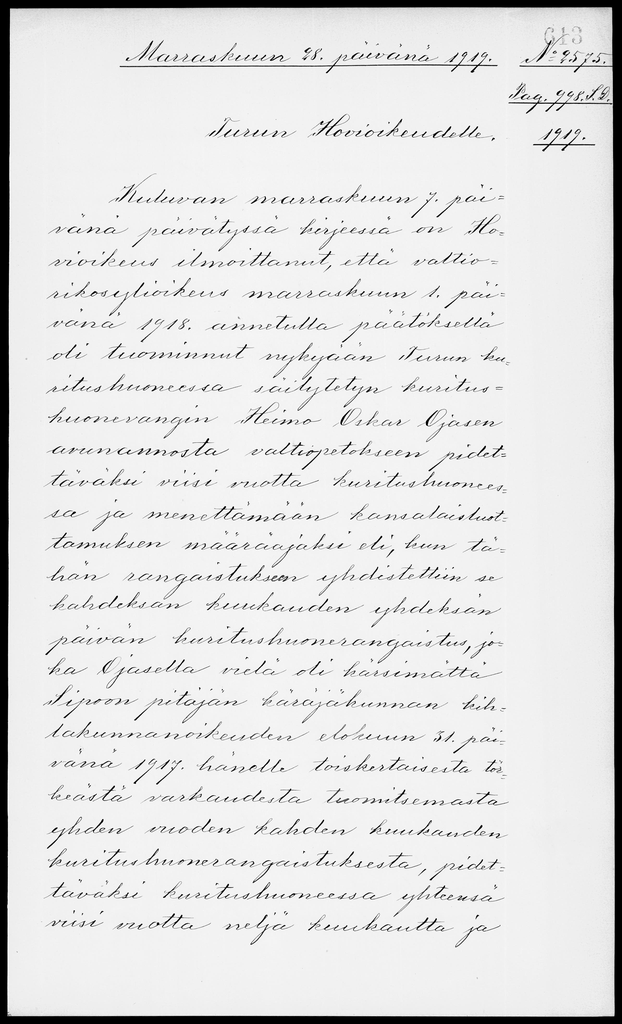 613
Marraskuun 28. päivänä 1919.
No 2575.
Pag. 998. S.D.
1919.
Turun Hovioikeudelle.
Kuluvan marraskuun 7. päi=
vänä päivätyssä kirjeessä on Ho=
vioikeus ilmoittanut, että valtio=
rikosylioikeus marraskuun 1. päi=
vänä 1918. annetulla päätöksellä
oli tuominnut nykyään Turun ku=
ritushuoneessa säilytetyn kuritus=
huonevangin Heimo Oskar Ojasen
avunannosta valtiopetokseen pidet=
täväksi viisi vuotta kuritushuonees=
sa ja menettämään kansalaisluot=
tamuksen määräajaksi eli, kun tä=
hän rangaistukseen yhdistettiin se
kahdeksan kuukauden yhdeksän
päivän kuritushuonerangaistus, jo=
ka Ojasella vielä oli kärsimättä
Sipoon pitäjän käräjäkunnan kih=
lakunnanoikeuden elokuun 31. päi=
vänä 1917. hänelle toiskertaisesta tör=
keästä varkaudesta tuomitsemasta
yhden vuoden kahden kuukauden
kuritushuonerangaistuksesta, pidet=
täväksi kuritushuoneessa yhteensä
viisi vuotta neljä kuukautta ja